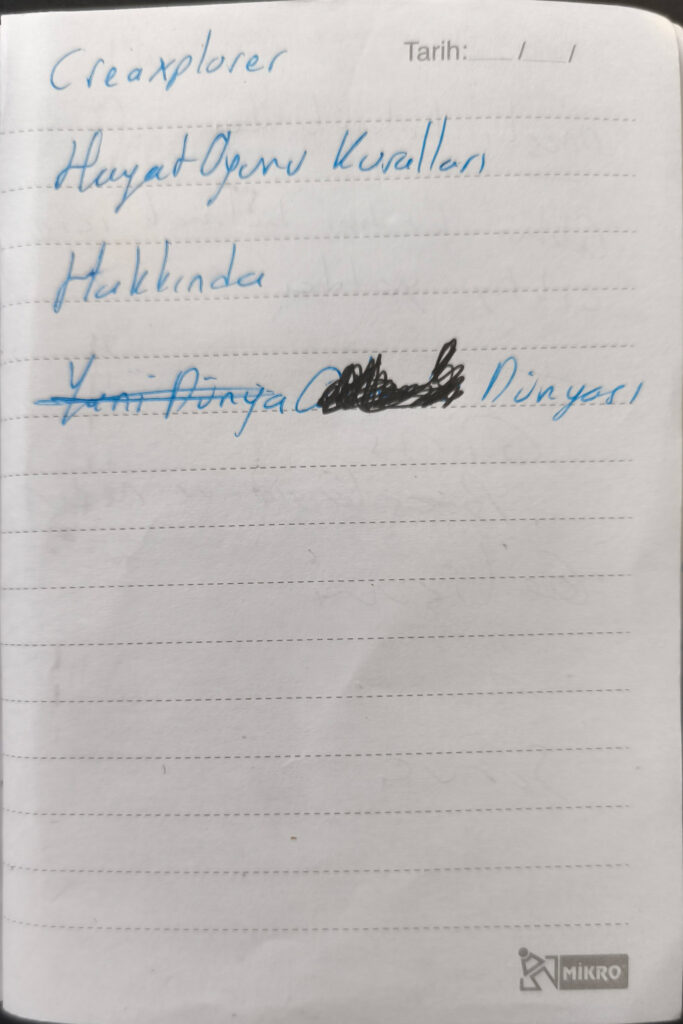 Creaxplorer
Tarih: / /
Hayat Oyunu Kuralları
Hakkında
Yeni Dünya Dünyası
MİKRO